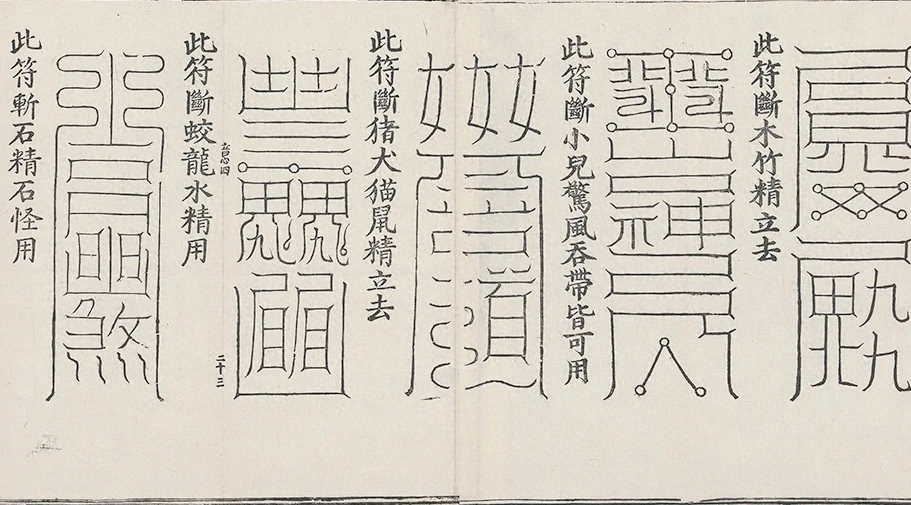 此符斷木竹精立去
此符斷小兒驚風吞帶皆可用
此符斷猪犬猫鼠精立去
二十三
此符斷蛟龍水精用
此符斬石精石怪用